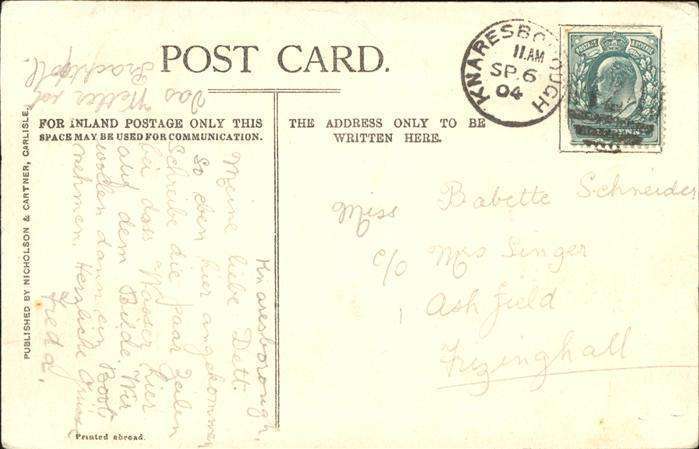 POST CARD.
KNARESBOROUGH
11.AM
SP.6
04
POSTAGE & REVENUE
HALFPENNY
FOR INLAND POSTAGE ONLY THIS
SPACE MAY BE USED FOR COMMUNICATION.
THE ADDRESS ONLY TO BE
WRITTEN HERE.
Knaresborough,
Meine liebe Dett.
So eben hier angekommen
Schreibe die paar Zeilen
bei dem Wasser hier
auf dem Bilde. Wir
wollen dann ein Boot
nehmen. Herzliche Grüsse
Freda.
Das Wetter ist
prachtvoll.
Miss Babette Schneider
c/o Mrs Singer
1 Ashfield
Frizinghall
PUBLISHED BY NICHOLSON & CARTNER, CARLISLE.
Printed abroad.